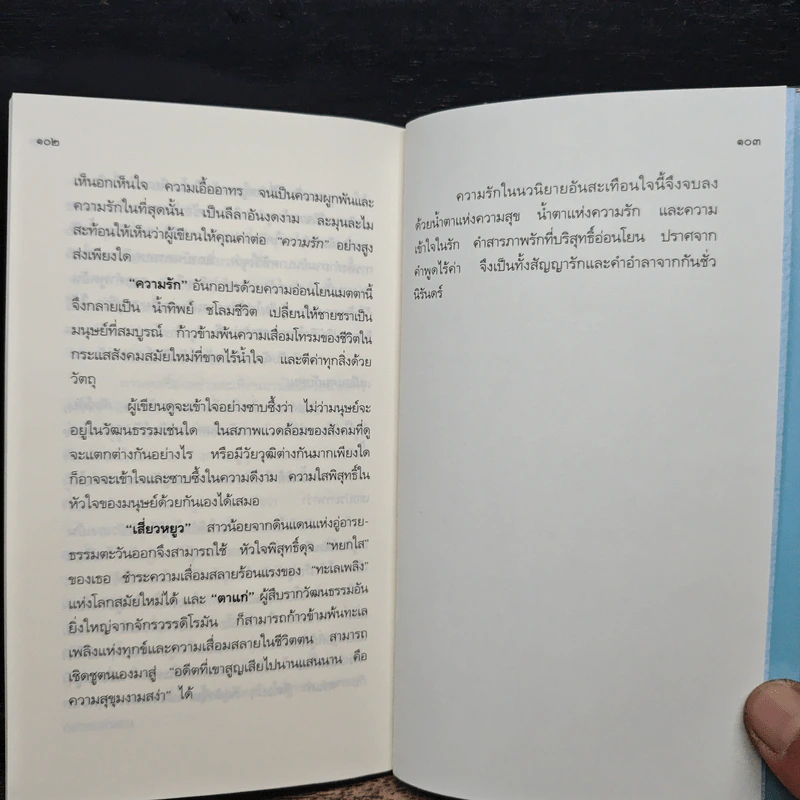 ๑๐๒
เห็นอกเห็นใจ ความเอื้ออาทร จนเป็นความผูกพันและ
ความรักในที่สุดนั้น เป็นลีลาอันงดงาม ละมุนละไม
สะท้อนให้เห็นว่าผู้เขียนให้คุณค่าต่อ "ความรัก" อย่างสูง
ส่งเพียงใด
"ความรัก" อันกอปรด้วยความอ่อนโยนเมตตานี้
จึงกลายเป็น น้ำทิพย์ ชโลมชีวิต เปลี่ยนให้ชายชราเป็น
มนุษย์ที่สมบูรณ์ ก้าวข้ามพ้นความเสื่อมโทรมของชีวิตใน
กระแสสังคมสมัยใหม่ที่ขาดไร้น้ำใจ และตีค่าทุกสิ่งด้วย
วัตถุ
ผู้เขียนดูจะเข้าใจอย่างซาบซึ้งว่า ไม่ว่ามนุษย์จะ
อยู่ในวัฒนธรรมเช่นใด ในสภาพแวดล้อมของสังคมที่ดู
จะแตกต่างกันอย่างไร หรือมีวัยวุฒิต่างกันมากเพียงใด
ก็อาจจะเข้าใจและซาบซึ้งในความดีงาม ความใสพิสุทธิ์ใน
หัวใจของมนุษย์ด้วยกันเองได้เสมอ
"เสี่ยวหยูว" สาวน้อยจากดินแดนแห่งอู่อารย-
ธรรมตะวันออกจึงสามารถใช้ หัวใจพิสุทธิ์ดุจ "หยกใส"
ของเธอ ชำระความเสื่อมสลายร้อนแรงของ "ทะเลเพลิง"
แห่งโลกสมัยใหม่ได้ และ "ตาแก่" ผู้สืบรากวัฒนธรรมอัน
ยิ่งใหญ่จากจักรวรรดิโรมัน ก็สามารถก้าวข้ามพ้นทะเล
เพลิงแห่งทุกข์และความเสื่อมสลายในชีวิตตน สามารถ
เชิดชูตนเองมาสู่ "อดีตที่เขาสูญเสียไปนานแสนนาน คือ
ความสุขุมงามสง่า" ได้
๑๐๓
ความรักในนวนิยายอันสะเทือนใจนี้จึงจบลง
ด้วยน้ำตาแห่งความสุข น้ำตาแห่งความรัก และความ
เข้าใจในรัก คำสารภาพรักที่บริสุทธิ์อ่อนโยน ปราศจาก
คำพูดไร้ค่า จึงเป็นทั้งสัญญารักและคำอำลาจากกันชั่ว
นิรันดร์